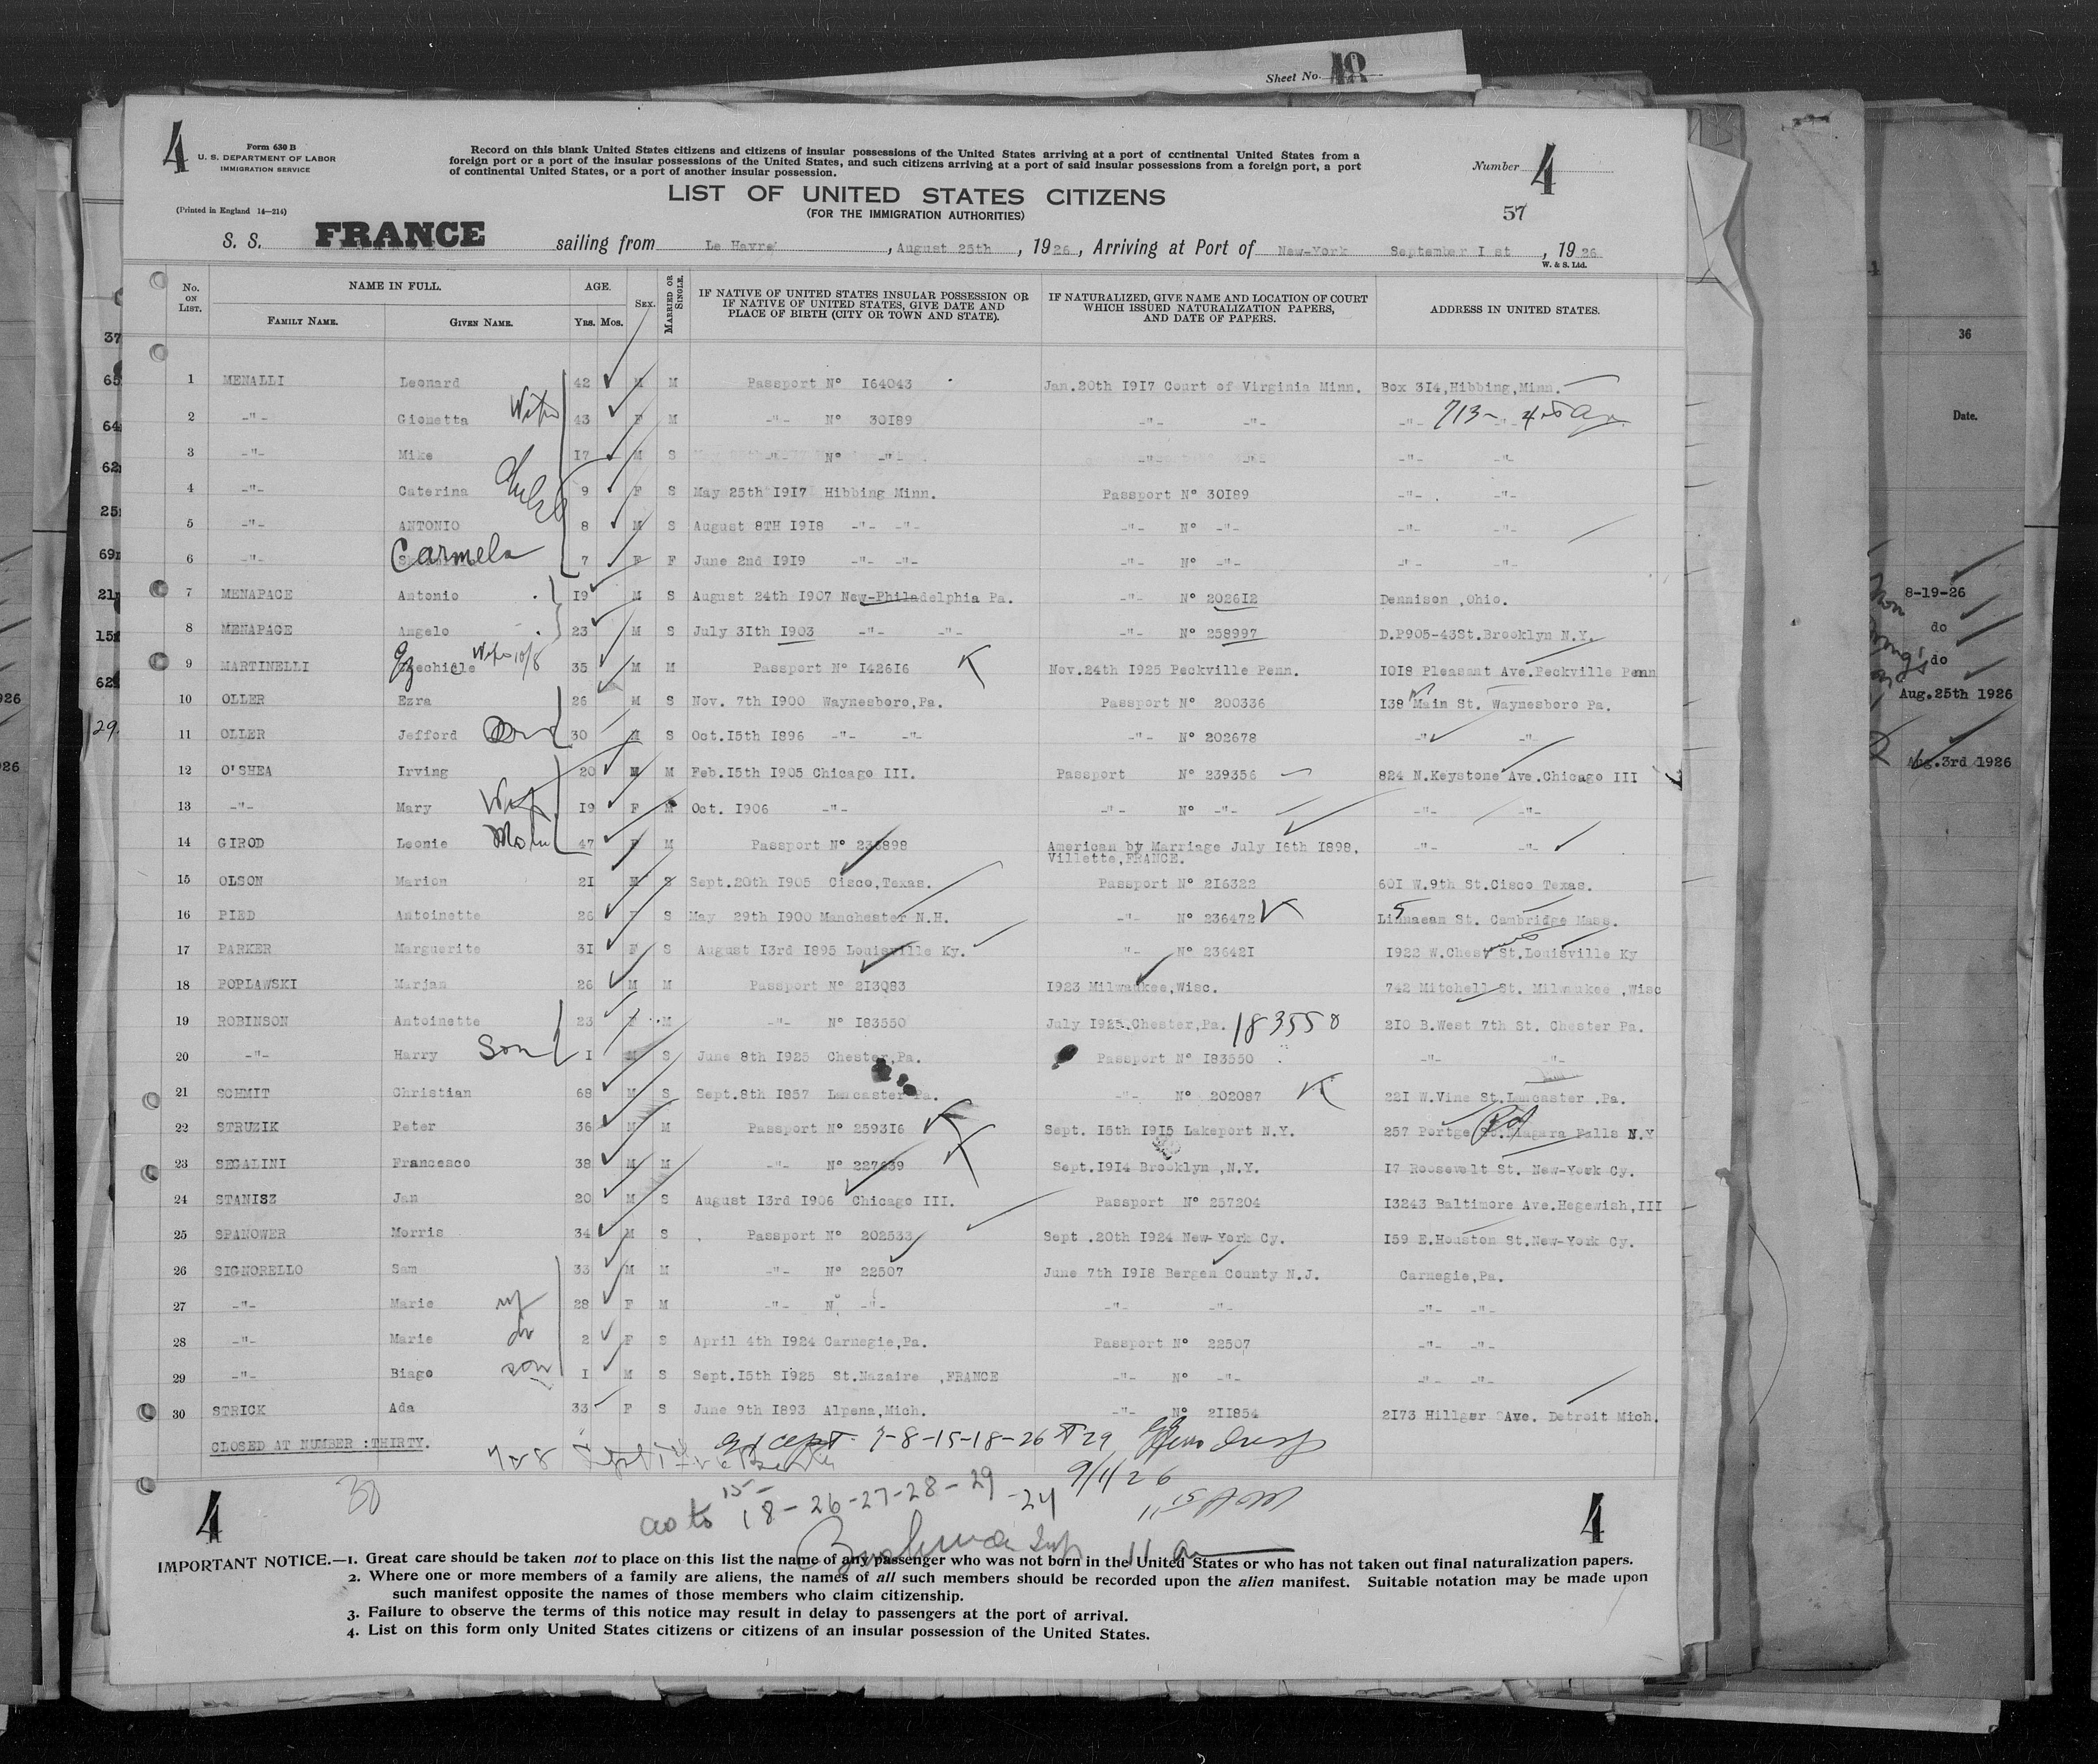 Sheet No. 18
4
Form 630 B
U. S. DEPARTMENT OF LABOR
IMMIGRATION SERVICE
(Printed in England 14—214)
Record on this blank United States citizens and citizens of insular possessions of the United States arriving at a port of continental United States from a
foreign port or a port of the insular possessions of the United States, and such citizens arriving at a port of said insular possessions from a foreign port, a port
of continental United States, or a port of another insular possession.
Number 4
LIST OF UNITED STATES CITIZENS
(FOR THE IMMIGRATION AUTHORITIES)
57
S. S. FRANCE sailing from Le Havre, August 25th, 1926, Arriving at Port of New-York September I st, 1926
W. & S. Ltd.
No. ON LIST. NAME IN FULL. FAMILY NAME. GIVEN NAME. AGE. YRS. MOS. SEX. MARRIED OR SINGLE. IF NATIVE OF UNITED STATES INSULAR POSSESSION OR IF NATIVE OF UNITED STATES, GIVE DATE AND PLACE OF BIRTH (CITY OR TOWN AND STATE). IF NATURALIZED, GIVE NAME AND LOCATION OF COURT WHICH ISSUED NATURALIZATION PAPERS, AND DATE OF PAPERS. ADDRESS IN UNITED STATES.
1 MENALLI Leonard 42 M M Passport N° I64043 Jan.20th I9I7 Court of Virginia Minn. Box 3I4,Hibbing,Minn.
2 -"- Gionetta Wife 43 F M -"- N° 30I89 -"- -"- -"- 713- -"-
3 -"- Mike I7 M S -"- N° -"- -"- -"-
4 -"- Caterina 9 F S May 25th I9I7 Hibbing Minn. Passport N° 30I89 -"- -"-
5 -"- ANTONIO 8 M S August 8TH I9I8 -"- -"- -"- N° -"- -"- -"-
6 -"- Carmela 7 F F June 2nd I9I9 -"- -"- -"- N° -"- -"- -"-
7 MENAPACE Antonio I9 M S August 24th I907 New-Philadelphia Pa. -"- N° 2026I2 Dennison ,Ohio.
8 MENAPACE Angelo 23 M S July 3Ith I903 -"- -"- -"- N° 258997 D.P905-43St.Brooklyn N.Y.
9 MARTINELLI Ezechiele Wife 10/8 35 M M Passport N° I426I6 Nov.24th I925 Peckville Penn. I0I8 Pleasant Ave.Peckville Penn
10 OLLER Ezra 26 M S Nov. 7th I900 Waynesboro,Pa. Passport N° 200336 I38 Main St. Waynesboro Pa.
11 OLLER Jefford 30 M S Oct.I5th I896 -"- -"- -"- N° 202678 -"- -"-
12 O'SHEA Irving 20 M M Feb.I5th I905 Chicago III. Passport N° 239356 824 N.Keystone Ave.Chicago III
13 -"- Mary Wife I9 F M Oct. I906 -"- -"- N° -"- -"- -"-
14 GIROD Leonie 47 F M Passport N° 236898 American by Marriage July I6th I898, Villette,FRANCE. -"- -"-
15 OLSON Marion 2I M S Sept.20th I905 Cisco,Texas. Passport N° 2I6322 60I W.9th St.Cisco Texas.
16 PIED Antoinette 26 F S May 29th I900 Manchester N.H. -"- N° 236472 5 Linnaean St. Cambridge Mass.
17 PARKER Marguerite 3I F S August I3rd I895 Louisville Ky. -"- N° 23642I I922 W.Chest St.Louisville Ky
18 POPLAWSKI Marjan 26 M M Passport N° 2I3083 I923 Milwaukee,Wisc. 742 Mitchell St. Milwaukee ,Wisc
19 ROBINSON Antoinette 23 F M -"- N° I83550 July I925.Chester,Pa. 183550 2I0 B.West 7th St. Chester Pa.
20 -"- Harry Son I M S June 8th I925 Chester,Pa. Passport N° I83550 -"- -"-
21 SCHMIT Christian 68 M S Sept.8th I857 Lancaster Pa. -"- N° 202087 22I W.Vine St.Lancaster .Pa.
22 STRUZIK Peter 36 M M Passport N° 2593I6 Sept. I5th I9I5 Lakeport N.Y. 257 Portge Rd St.Niagara Falls N.Y
23 SEGALINI Francesco 38 M M -"- N° 227639 Sept.I9I4 Brooklyn ,N.Y. I7 Roosevelt St. New-York Cy.
24 STANISZ Jan 20 M S August I3rd I906 Chicago III. Passport N° 257204 I3243 Baltimore Ave.Hegewish,III
25 SPANOWER Morris 34 M S Passport N° 202533 Sept .20th I924 New-York Cy. I59 E.Houston St.New-York Cy.
26 SIGNORELLO Sam 33 M M -"- N° 22507 June 7th I9I8 Bergen County N.J. Carnegie,Pa.
27 -"- Marie wf 28 F M -"- N° -"- -"- -"- -"- -"-
28 -"- Marie 2 F S April 4th I924 Carnegie,Pa. Passport N° 22507 -"- -"-
29 -"- Biago son I M S Sept.I5th I925 St.Nazaire ,FRANCE -"- N° -"- -"- -"-
30 STRICK Ada 33 F S June 9th I893 Alpena,Mich. -"- N° 2II854 2I73 Hillger Ave. Detroit Mich.
CLOSED AT NUMBER :THIRTY.
Except 7-8-15-18-26 29
7 & 8
9/1/26
30
as to 15- 18-26-27-28-29 -24
11 15 AM
11 a
4
4
IMPORTANT NOTICE.—1. Great care should be taken not to place on this list the name of any passenger who was not born in the United States or who has not taken out final naturalization papers.
2. Where one or more members of a family are aliens, the names of all such members should be recorded upon the alien manifest. Suitable notation may be made upon
such manifest opposite the names of those members who claim citizenship.
3. Failure to observe the terms of this notice may result in delay to passengers at the port of arrival.
4. List on this form only United States citizens or citizens of an insular possession of the United States.
36
Date.
8-19-26
do
do
Aug.25th 1926
Aug.3rd 1926